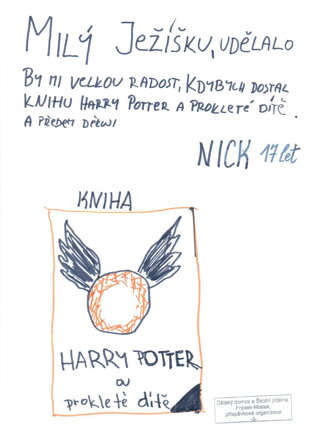 MILÝ JEŽÍŠKU, UDĚLALO
BY MI VELKOU RADOST, KDYBYCH DOSTAL
KNIHU HARRY POTTER A PROKLETÉ DÍTĚ.
A PŘEDEM DĚKUJI
NICK 17 let
KNIHA
HARRY POTTER
a
prokleté dítě
Dětský domov a Školní jídelna,
Frýdek-Místek,
příspěvková organizace